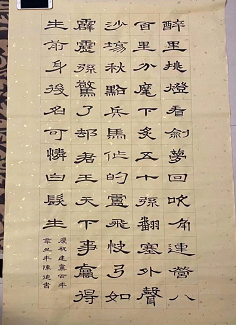 醉里挑燈看劍夢回吹角連營八
百里分麾下炙五十弦翻塞外聲
沙場秋點兵馬作的盧飛快弓如
霹靂弦驚了却君王天下事贏得
生前身後名可憐白髮生
慶祝建黨百年
辛丑年陳書